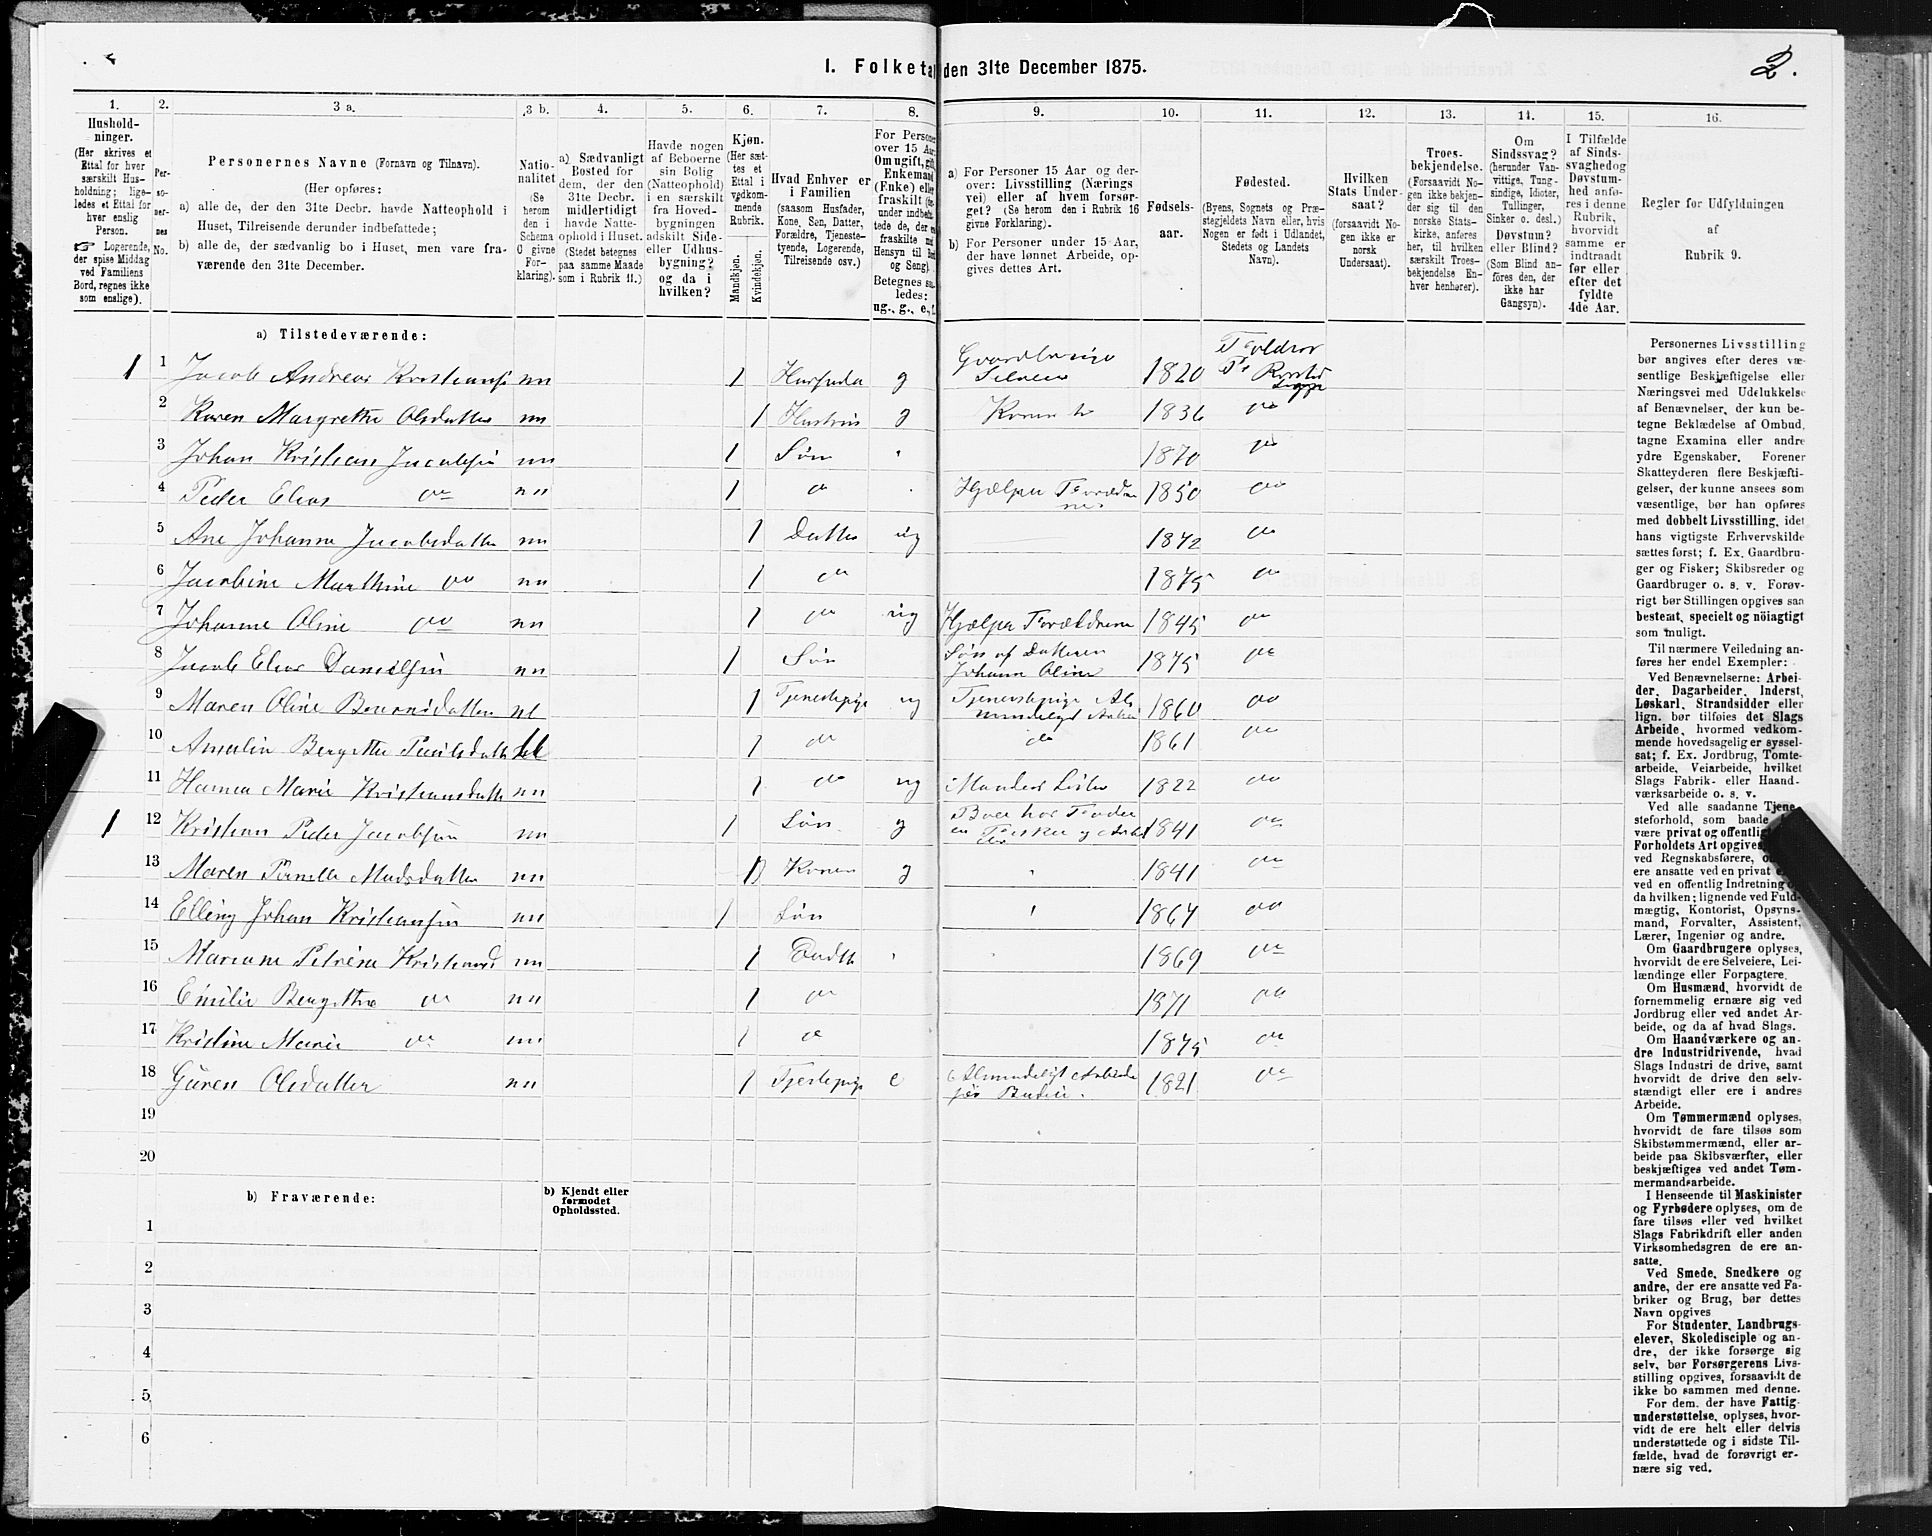 1. Folketal den 31te December 1875.
2.
1. 2. 3 a. 3 b. 4. 5. 6. 7. 8. 9. 10. 11. 12. 13. 14. 15. 16.
Hushold-
ninger.
(Her skrives et
Ettal for hver
særskilt Hus-
holdning; lige-
ledes et Ettal for
hver enslig
Person.
☞ Logerende,
der spise Middag
ved Familiens
Bord, regnes ikke
som enslige).
Per-
so-
ner-
nes
No.
Personernes Navne (Fornavn og Tilnavn).
(Her opføres:
a) alle de, der den 31te Decbr. havde Natteophold i
Huset, Tilreisende derunder indbefattede;
b) alle de, der sædvanlig bo i Huset, men vare fra-
værende den 31te December.
Natio-
nalitet
(Se
herom
den i
Schema
0 givne
For-
klaring).
a) Sædvanligt
Bosted for
dem, der den
31te Decbr.
midlertidigt
havde Natte-
ophold i Huset.
(Stedet betegnes
paa samme Maade
som i Rubrik 11.)
Havde nogen
af Beboerne
sin Bolig
(Natteophold)
i en særskilt
fra Hoved-
bygningen
adskilt Side-
eller Udhus-
bygning?
og da i
hvilken?
Kjøn.
(Her sæt-
tes et
Ettal i
vedkom-
mende
Rubrik.
Mandkjøn.
Kvindekjøn.
Hvad Enhver er
i Familien
(saasom Husfader,
Kone, Søn, Datter,
Forældre, Tjeneste-
tyende, Logerende,
Tilreisende osv.)
For Personer
over 15 Aar:
Om ugift, gift,
Enkemand
(Enke) eller
fraskilt
Betegnes saa-
ledes:
ug., g., e., f.
a) For Personer 15 Aar og der-
over: Livsstilling (Nærings
vei) eller af hvem forsør-
get? (Se herom den i Rubrik 16
givne Forklaring).
b) For Personer under 15 Aar,
der have lønnet Arbeide, op-
gives dettes Art.
Fødsels-
aar.
Fødested.
(Byens, Sognets og Præ-
stegjeldets Navn eller, hvis
Nogen er født i Udlandet,
Stedets og Landets
Navn).
Hvilken
Stats Under-
saat?
(forsaavidt No-
gen ikke er
norsk
Undersaat).
Troes-
bekjendelse.
(Forsaavidt No-
gen ikke bekjen-
der sig til den
norske Stats-
kirke, anføres
her, til hvilken
særskilt Troes-
bekjendelse En-
hver henhører).
Om
Sindssvag?
(herunder Van-
vittige, Tung-
sindige, Idioter,
Tullinger,
Sinker o. desl.)
Døvstum?
eller Blind?
(Som Blind an-
føres den, der
ikke har
Gangsyn).
I Tilfælde
af Sinds-
svaghed og
Døvstum-
hed anfø-
res i denne
Rubrik,
hvorvidt
samme er
indtraadt
før eller
efter det
fyldte
4de Aar.
Regler for Udfyldningen
af
Rubrik 9.
a) Tilstedeværende:
1 1 Jacob Andreas Kristiansen nn 1 g Gaardbruger Selveier 1820
2 Karen Margrethe Olsdatter nn 1 Hustru g Konen 1836 do
3 Johan Kristian Jacobsen nn 1 Søn 1870 do
4 Peder Elias do nn 1 do Hjælper Forældrene 1850 do
5 Ane Johanne Jacobsdatter nn 1 Datter ug 1872 do
6 Jacobine Marthine do nn 1 do 1875 do
7 Johanne Oline do nn 1 do ug Hjælper Forældrene 1845 do
8 Jacob Elias Danielsen nn 1 Søn Søn af Datteren Johanne Oline 1875 do
9 Maren Oline 1 Tjenestepige ug Tjenestepige 1860 do
10 1 do do 1861 do
11 Hanna Marie Kristiansdatter nn 1 do ug Mandens Søster 1822 do
1 12 Kristian Peder Jacobsen nn 1 Søn g Boer hos Fader 1841 do
13 Maren Pernille Madsdatter nn 1 Konen g 1841 do
14 Elling Johan Kristiansen nn 1 Søn 1867 do
15 nn 1 1869 do
16 Emilie Bergithe do nn 1 do 1871 do
17 Kristine Marie do nn 1 do 1875 do
18 Guren Olsdatter nn 1 e Almindeligt Arbeide 1821 do
19
20
b) Fraværende:
b) Kjendt eller
formodet
Opholdssted.
1
2
3
4
5
6
Personernes Livsstilling
bør angives efter deres væ-
sentlige Beskjæftigelse eller
Næringsvei med Udelukkelse
af Benævnelser, der kun be-
tegne Beklædelse af Ombud,
tagne Examina eller andre
ydre Egenskaber. Forener
Skatteyderen flere Beskjæfti-
gelser, der kunne ansees som
væsentlige, bør han opføres
med dobbelt Livsstilling, idet
hans vigtigste Erhvervskilde
sættes først; f. Ex. Gaardbru-
ger og Fisker; Skibsreder og
Gaardbruger o. s. v. Forøv-
rigt bør Stillingen opgives saa
bestemt, specielt og nöiagtigt
som muligt.
Til nærmere Veiledning an-
føres her endel Exempler:
Ved Benævnelserne: Arbei-
der, Dagarbeider, Inderst,
Løskarl, Strandsidder eller
lign. bør tilføies det Slags
Arbeide, hvormed vedkom-
mende hovedsagelig er syssel-
sat; f. Ex. Jordbrug, Tomte-
arbeide, Veiarbeide, hvilket
Slags Fabrik- eller Haand-
værksarbeide o. s. v.
Ved alle saadanne Tjene-
steforhold, som baade
være privat og offentlig
Forholdets Art opgives,
ved Regnskabsførere,
ere ansatte ved en privat
ved en offentlig Indretning
da hvilken; lignende ved Fuld-
mægtig, Kontorist, Opsyns-
mand, Forvalter, Assistent,
Lærer, Ingeniør og andre.
Om Gaardbrugere oplyses,
hvorvidt de ere Selveiere, Lei-
lændinge eller Forpagtere.
Om Husmænd, hvorvidt de
fornemmelig ernære sig ved
Jordbrug eller ved andet Ar-
beide, og da af hvad Slags.
Om Haandværkere og an-
dre Industridrivende, hvad
Slags Industri de drive, samt
hvorvidt de drive den selv-
stændigt eller ere i andres
Arbeide.
Om Tømmermænd oplyses,
hvorvidt de fare tilsøs som
Skibstømmermænd, eller ar-
beide paa Skibsværfter, eller
beskjæftiges ved andet Tøm-
mermandsarbeide.
I Henseende til Maskinister
og Fyrbødere oplyses, om de
fare tilsøs eller ved hvilket
Slags Fabrikdrift eller anden
Virksomhedsgren de ere an-
satte.
Ved Smede, Snedkere og
andre, der ere ansatte ved Fa-
briker og Brug, bør dettes
Navn opgives
For Studenter, Landbrugs-
elever, Skoledisciple og an-
dre, der ikke forsørge sig
selv, bør Forsørgerens Livs-
stilling opgives, forsaavidt de
ikke bo sammen med denne.
For dem, der have Fattig-
understøttelse, oplyses, hvor-
vidt de ere helt eller delvis
understøttede og i sidste Til-
fælde, hvad de forøvrigt er-
nære sig ved.